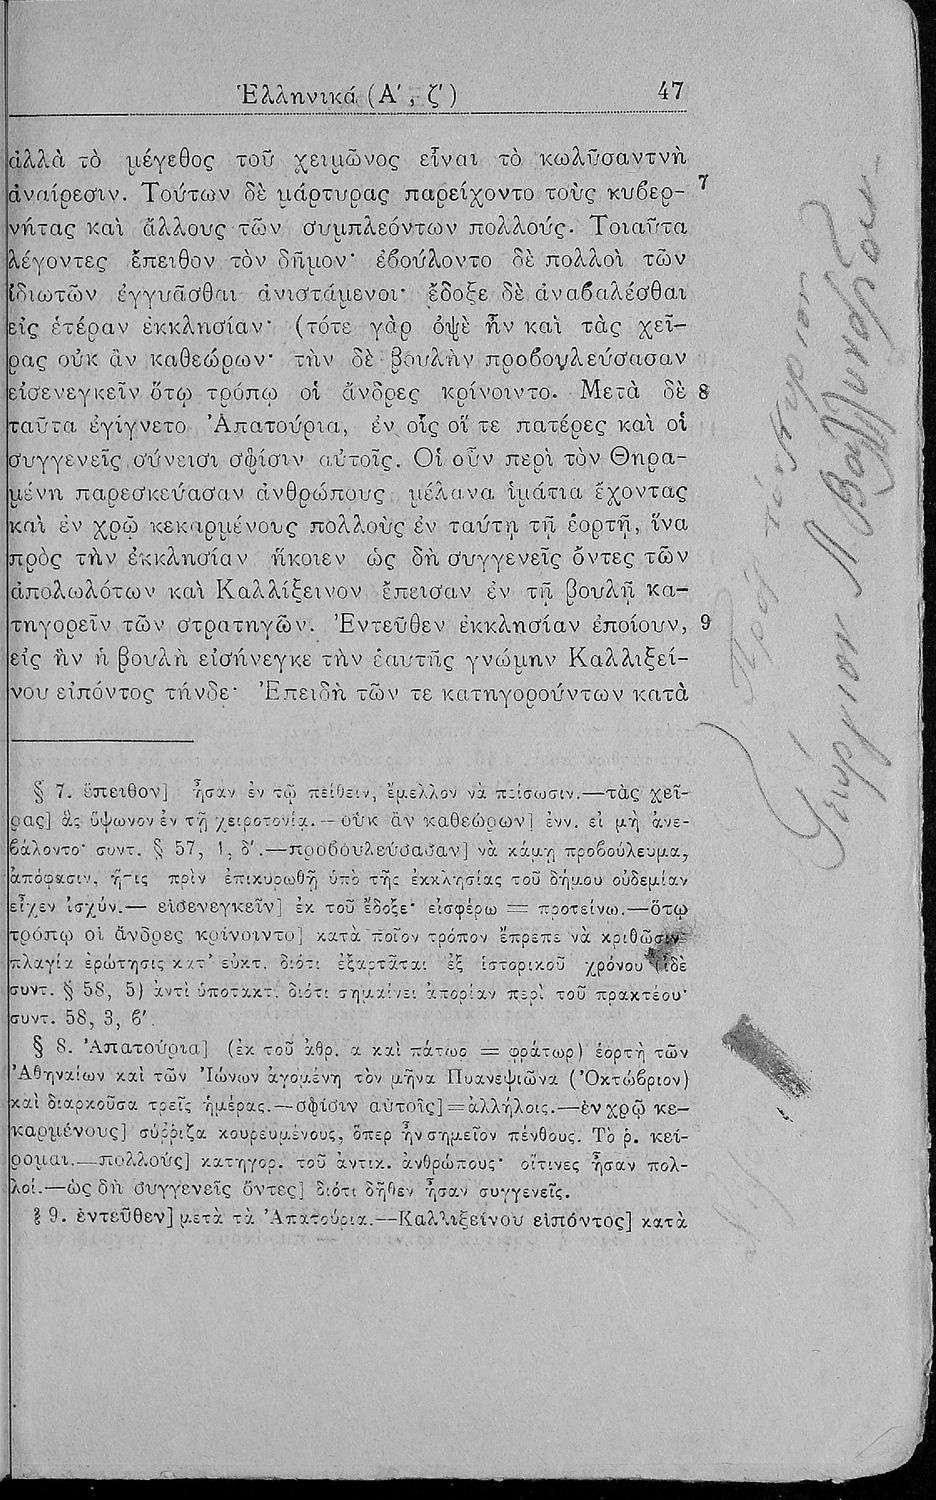 Ἑλληνικά (Α΄, ζ΄) 47
ἀλλὰ τὸ μέγεθος τοῦ χειμῶνος εἶναι τὸ κωλῦσαντνὴ
ἀναίρεσιν. Τούτων δὲ μάρτυρας παρείχοντο τοὺς κυβερ- 7
νήτας καὶ ἄλλους τῶν συμπλεόντων πολλούς. Τοιαῦτα
λέγοντες ἔπειθον τὸν δῆμον· ἐβούλοντο δὲ πολλοὶ τῶν
ἰδιωτῶν ἐγγυᾶσθαι ἀνιστάμενοι· ἔδοξε δὲ ἀναβαλέσθαι
εἰς ἑτέραν ἐκκλησίαν· (τότε γὰρ ὀψὲ ἦν καὶ τὰς χεῖ-
ρας οὐκ ἂν καθεώρων· τὴν δὲ βουλὴν προβουλεύσασαν
εἰσενεγκεῖν ὅτῳ τρόπῳ οἱ ἄνδρες κρίνοιντο. Μετὰ δὲ 8
ταῦτα ἐγίγνετο Ἀπατούρια, ἐν οἷς οἵ τε πατέρες καὶ οἱ
συγγενεῖς σύνεισι σφίσιν αὐτοῖς. Οἱ οὖν περὶ τὸν Θηρα-
μένη παρεσκεύασαν ἀνθρώπους μέλανα ἱμάτια ἔχοντας
καὶ ἐν χρῷ κεκαρμένους πολλοὺς ἐν ταύτῃ τῇ ἑορτῇ, ἵνα
πρὸς τὴν ἐκκλησίαν ἥκοιεν ὡς δὴ συγγενεῖς ὄντες τῶν
ἀπολωλότων καὶ Καλλίξεινον ἔπεισαν ἐν τῇ βουλῇ κα-
τηγορεῖν τῶν στρατηγῶν. Ἐντεῦθεν ἐκκλησίαν ἐποίουν, 9
εἰς ἣν ἡ βουλὴ εἰσήνεγκε τὴν ἑαυτῆς γνώμην Καλλιξεί-
νου εἰπόντος τήνδε· Ἐπειδὴ τῶν τε κατηγορούντων κατὰ
§ 7. ἔπειθον] ἦσαν ἐν τῷ πείθειν, ἔμελλον νὰ πείσωσιν.—τὰς χεῖ-
ρας] ἃς ὕψωνον ἐν τῇ χειροτονίᾳ.—οὐκ ἂν καθεώρων] ἐνν. εἰ μὴ ἀνε-
βάλοντο· συντ. § 57, 1, δ΄.—προβουλεύσασαν] νὰ κάμῃ προβούλευμα,
ἀπόφασιν, ἥτις πρὶν ἐπικυρωθῇ ὑπὸ τῆς ἐκκλησίας τοῦ δήμου οὐδεμίαν
εἶχεν ἰσχύν.— εἰσενεγκεῖν] ἐκ τοῦ ἔδοξε· εἰσφέρω = προτείνω.—ὅτῳ
τρόπῳ οἱ ἄνδρες κρίνοιντο] κατὰ ποῖον τρόπον ἔπρεπε νὰ κριθῶσιν·
πλαγία ἐρώτησις κατ' εὐκτ. διότι ἐξαρτᾶται ἐξ ἱστορικοῦ χρόνου (ἰδὲ
συντ. § 58, 5) ἀντὶ ὑποτακτ. διότι σημαίνει ἀπορίαν περὶ τοῦ πρακτέου·
συντ. 58, 3, β΄.
§ 8. Ἀπατούρια] (ἐκ τοῦ ἀθρ. α καὶ πάτωρ = φράτωρ) ἑορτὴ τῶν
Ἀθηναίων καὶ τῶν Ἰώνων ἀγομένη τὸν μῆνα Πυανεψιῶνα (Ὀκτώβριον)
καὶ διαρκοῦσα τρεῖς ἡμέρας.—σφίσιν αὐτοῖς]=ἀλλήλοις.—ἐν χρῷ κε-
καρμένους] σύρριζα κουρευμένους, ὅπερ ἦν σημεῖον πένθους. Τὸ ῥ. κεί-
ρομαι.—πολλοὺς] κατηγορ. τοῦ ἀντικ. ἀνθρώπους· οἵτινες ἦσαν πολ-
λοί.—ὡς δὴ συγγενεῖς ὄντες] διότι δῆθεν ἦσαν συγγενεῖς.
§ 9. ἐντεῦθεν] μετὰ τὰ Ἀπατούρια.—Καλλιξείνου εἰπόντος] κατὰ
Πρὸς τὸν κύριον
Γεώργιον